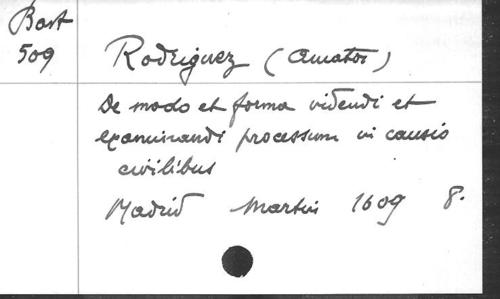 Bart
509
Rodriguez (Amator)
De modo et forma videndi et
examinandi processum in causis
civilibus
Madrid Martin 1609 8.